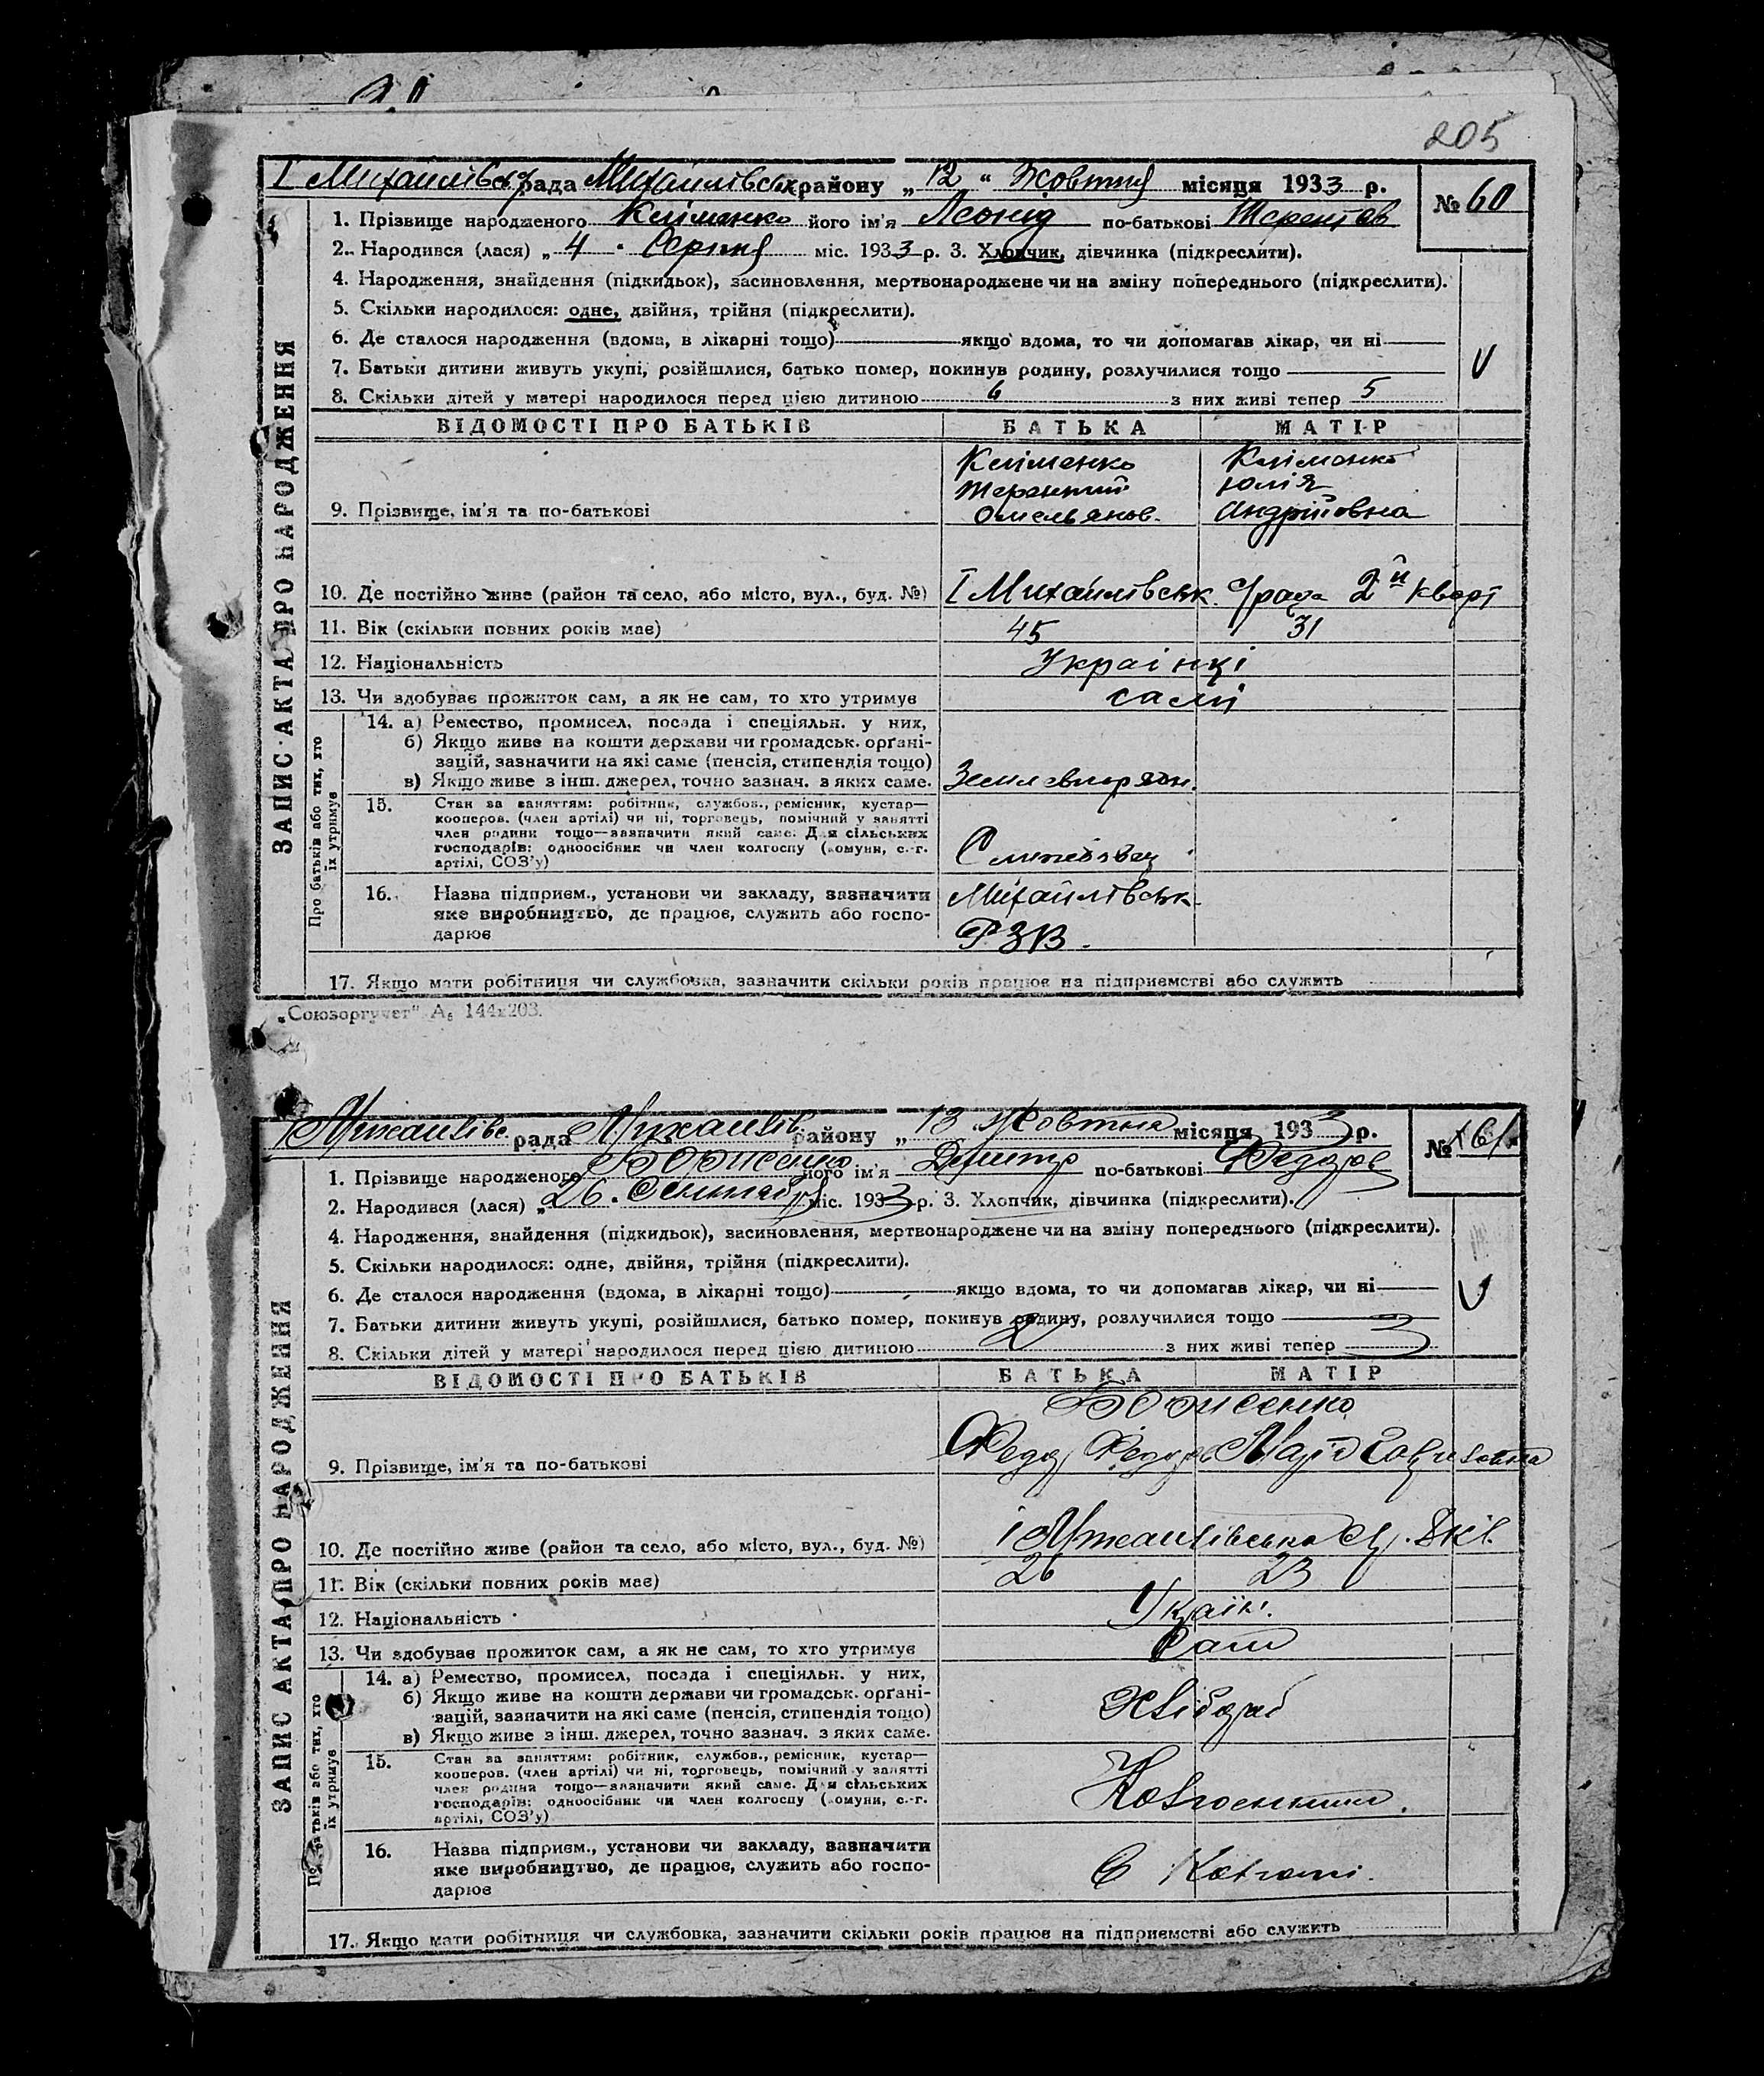 205
І Михайлівськ рада Михайлівськ району „ 12 “ Жовтня місяця 1933 р.
№ 60
1. Прізвище народженого Кліменко його ім'я Леонід по-батькові Терентов
2. Народився (лася) „ 4 “ Серпня міс. 1933 р. 3. Хлопчик, дівчинка (підкреслити).
4. Народження, знайдення (підкидьок), засиновлення, мертвонароджене чи на зміну попереднього (підкреслити).
5. Скільки народилося: одне, двійня, трійня (підкреслити).
6. Де сталося народження (вдома, в лікарні тощо) якщо вдома, то чи допомагав лікар, чи ні
7. Батьки дитини живуть укупі, розійшлися, батько помер, покинув родину, розлучилися тощо
8. Скільки дітей у матері народилося перед цією дитиною 6 з них живі тепер 5
ЗАПИС АКТА ПРО НАРОДЖЕННЯ
ВІДОМОСТІ ПРО БАТЬКІВ БАТЬКА МАТІР
Кліменко Кліменко
Терентий Юлія
9. Прізвище, ім'я та по-батькові Омельянов. Андріївна
10. Де постійно живе (район та село, або місто, вул., буд. №) І Михайлівськ. с/рада 2й кварт
11. Вік (скільки повних років має) 45 31
12. Національність Українці
13. Чи здобуває прожиток сам, а як не сам, то хто утримує сами
Про батьків або тих, хто їх утримує
14. а) Ремество, промисел, посада і спеціяльн. у них,
б) Якщо живе на кошти держави чи громадськ. орґані-
зацій, зазначити на які саме (пенсія, стипендія тощо)
в) Якщо живе з інш. джерел, точно зазнач. з яких саме. Землевпоряд.
15. Стан за заняттям: робітник, службов., ремісник, кустар—
кооперов. (член артілі) чи ні, торговець, помічний у занятті
член родини тощо—зазначити який саме. Для сільських
господарів: одноосібник чи член колгоспу (комуни, с.-г.
артілі, СОЗ'у)
16. Назва підприєм., установи чи закладу, зазначити Михайлівськ
яке виробництво, де працює, служить або госпо-
дарює РЗВ.
17. Якщо мати робітниця чи службовка, зазначити скільки років працює на підприємстві або служить
„Союзоргучет“ А₅ 144х203.
І Михайлівс. рада Михайлів району „ 13 Жовтня місяця 1933 р.
№ 61
1. Прізвище народженого Борисенко його ім'я Дмитр по-батькові Федоров
2. Народився (лася) „ 26. міс. 1933 р. 3. Хлопчик, дівчинка (підкреслити).
4. Народження, знайдення (підкидьок), засиновлення, мертвонароджене чи на зміну попереднього (підкреслити).
5. Скільки народилося: одне, двійня, трійня (підкреслити).
6. Де сталося народження (вдома, в лікарні тощо) якщо вдома, то чи допомагав лікар, чи ні
7. Батьки дитини живуть укупі, розійшлися, батько помер, покинув родину, розлучилися тощо
8. Скільки дітей у матері народилося перед цією дитиною 2 з них живі тепер 3
ЗАПИС АКТА ПРО НАРОДЖЕННЯ
ВІДОМОСТІ ПРО БАТЬКІВ БАТЬКА МАТІР
Борисенко
9. Прізвище, ім'я та по-батькові Федор Федоров Марія
10. Де постійно живе (район та село, або місто, вул., буд. №) І Михайлівська с/р. 8 кв.
11. Вік (скільки повних років має) 26 23
12. Національність Україн.
13. Чи здобуває прожиток сам, а як не сам, то хто утримує Сами
Про батьків або тих, хто їх утримує
14. а) Ремество, промисел, посада і спеціяльн. у них,
б) Якщо живе на кошти держави чи громадськ. орґані-
зацій, зазначити на які саме (пенсія, стипендія тощо) Хлібороб
в) Якщо живе з інш. джерел, точно зазнач. з яких саме.
15. Стан за заняттям: робітник, службов., ремісник, кустар—
кооперов. (член артілі) чи ні, торговець, помічний у занятті
член родини тощо—зазначити який саме. Для сільських
господарів: одноосібник чи член колгоспу (комуни, с.-г.
артілі, СОЗ'у)
16. Назва підприєм., установи чи закладу, зазначити
яке виробництво, де працює, служить або госпо-
дарює
17. Якщо мати робітниця чи службовка, зазначити скільки років працює на підприємстві або служить